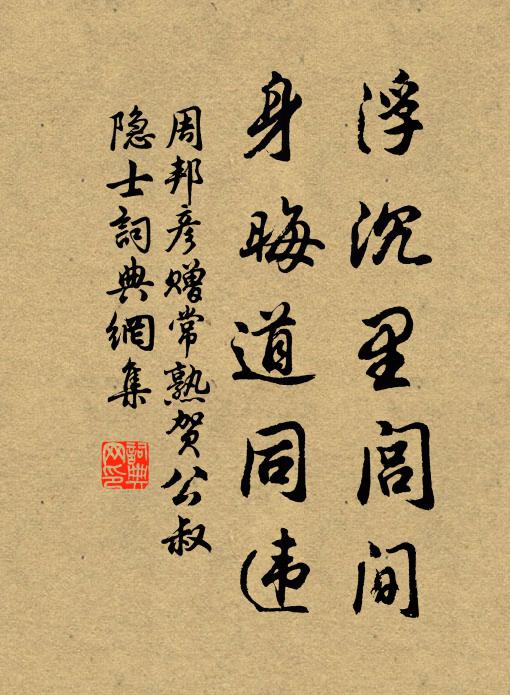 浮沉里闾间
身晦道同违
周邦彦赠常熟贺公叔
隐士詞典網集
詞典
网印